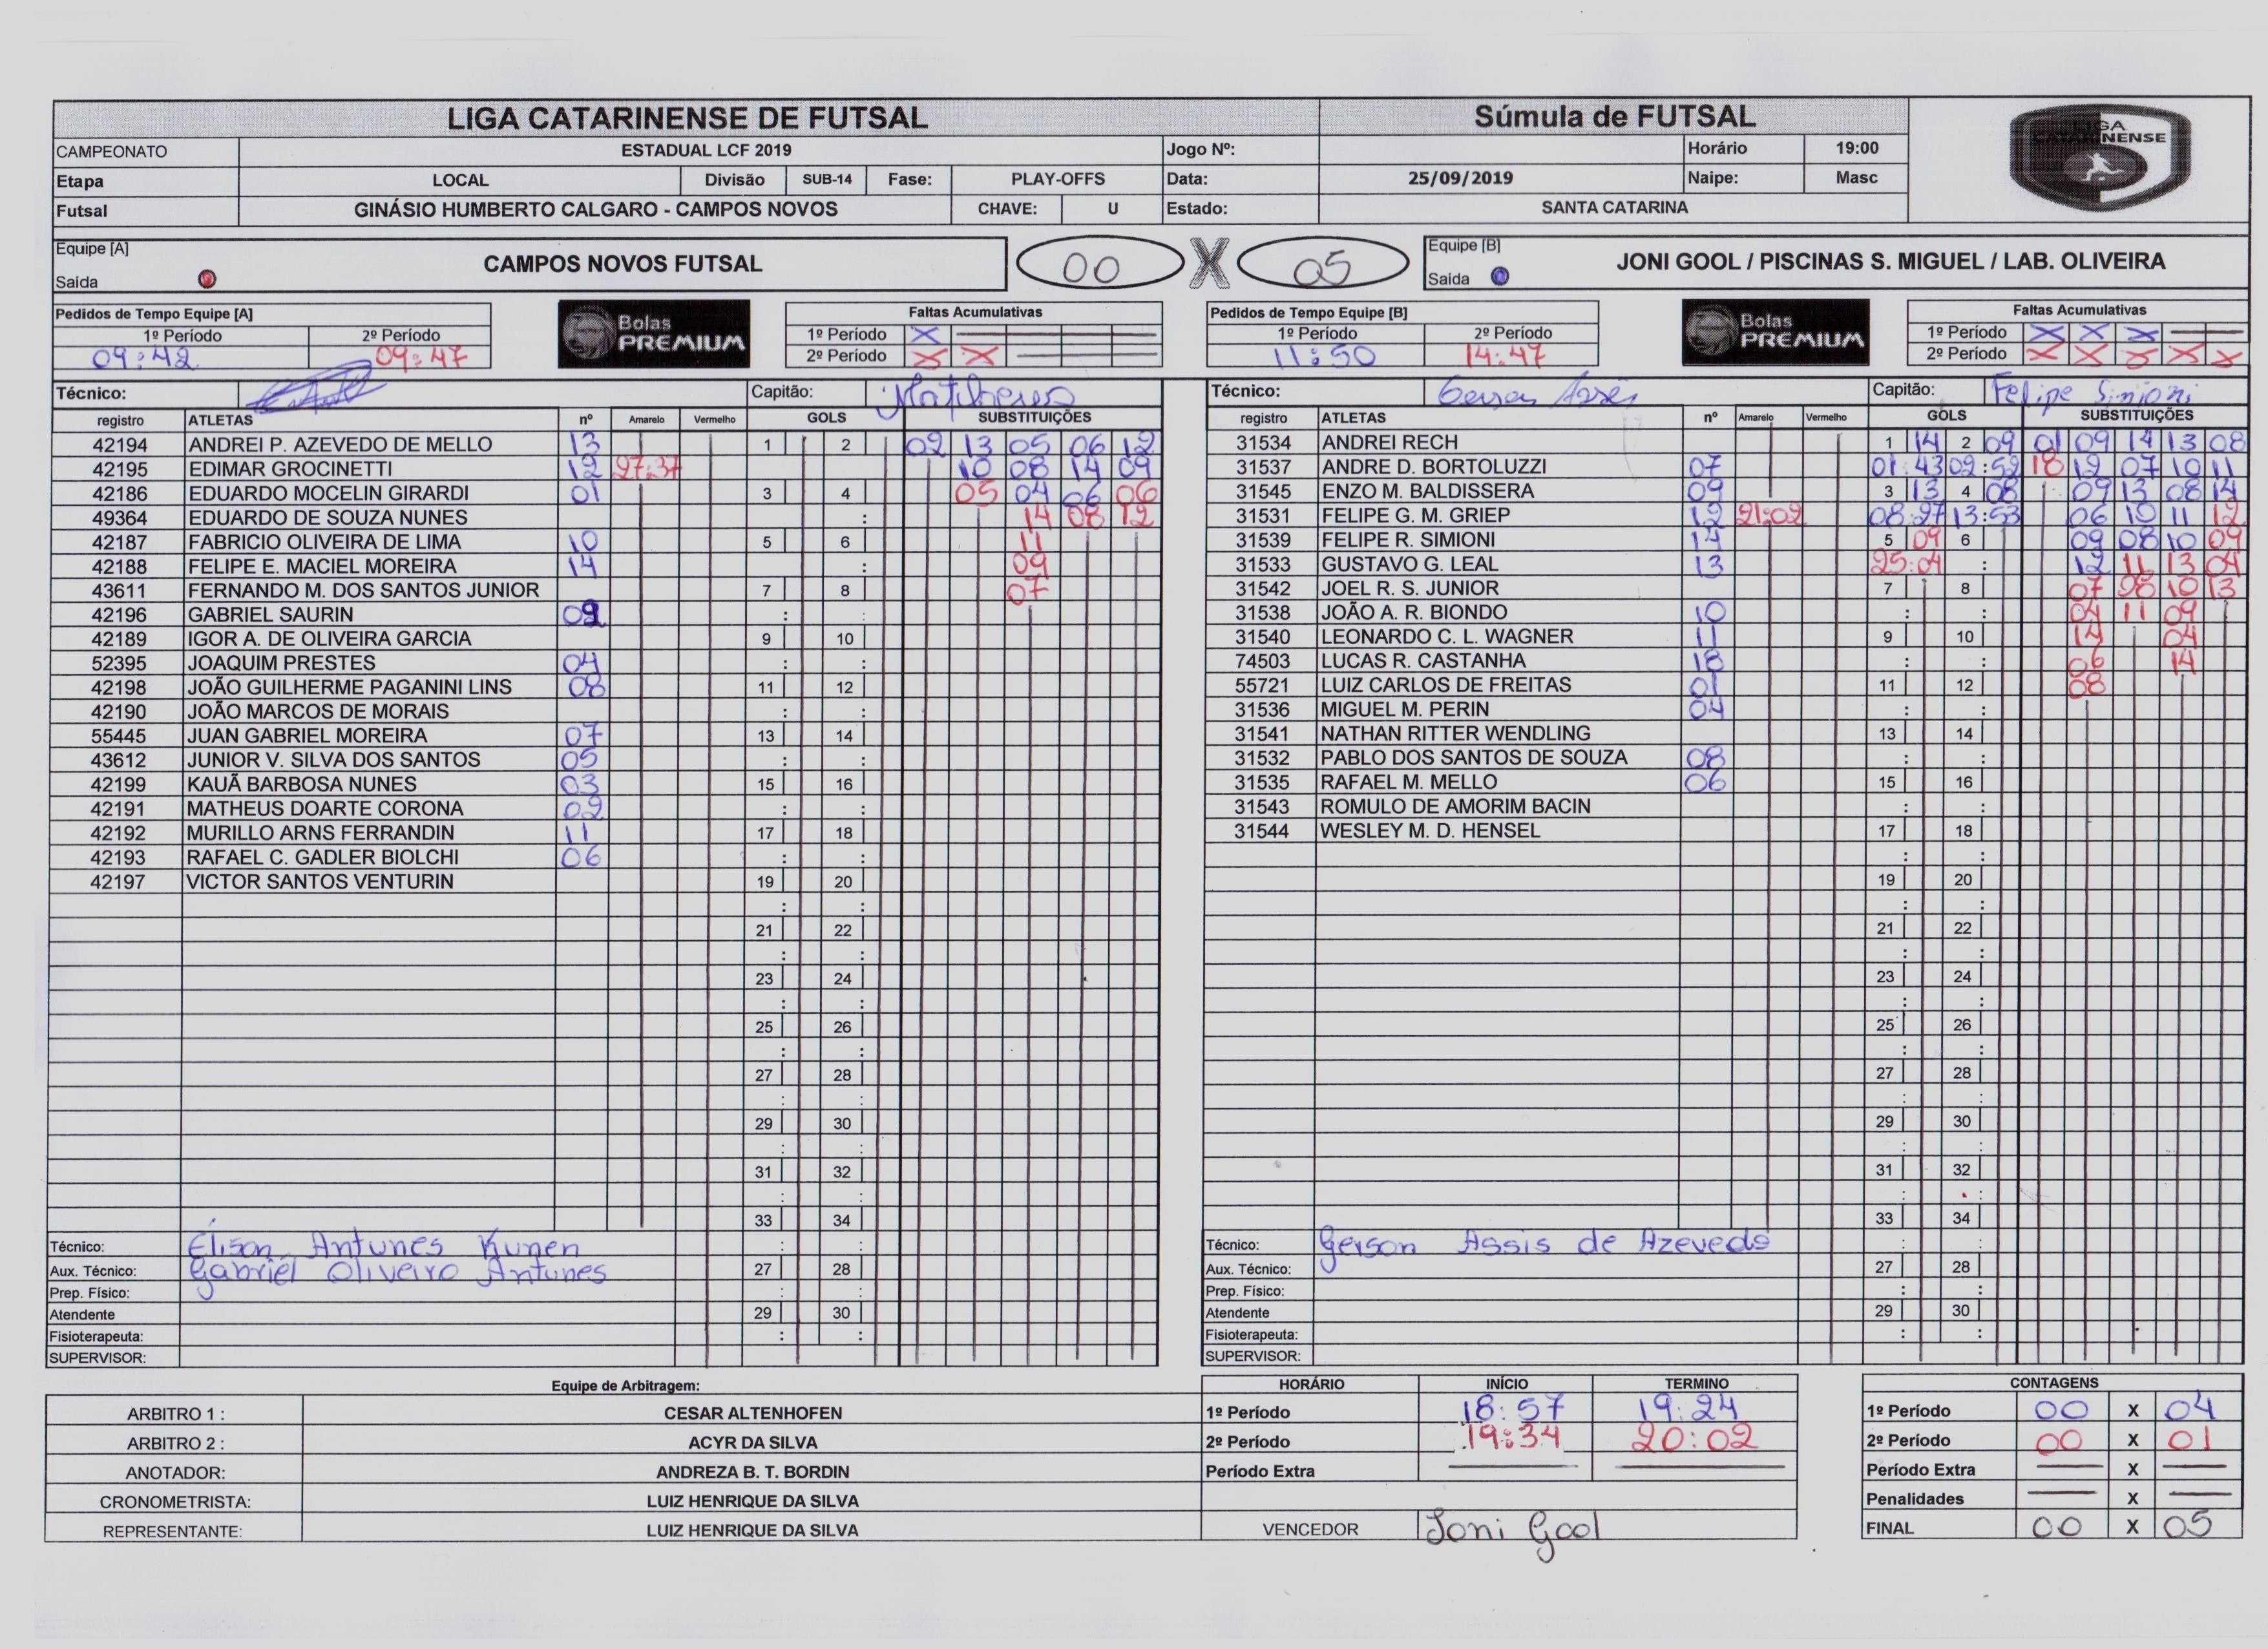 LIGA CATARINENSE DE FUTSAL Súmula de FUTSAL
LIGA CATARINENSE
CAMPEONATO ESTADUAL LCF 2019 Jogo Nº: Horário 19:00
Etapa LOCAL Divisão SUB-14 Fase: PLAY-OFFS Data: 25/09/2019 Naipe: Masc
Futsal GINÁSIO HUMBERTO CALGARO - CAMPOS NOVOS CHAVE: U Estado: SANTA CATARINA
Equipe [A] Saída CAMPOS NOVOS FUTSAL 00 X 05 Equipe [B] Saída JONI GOOL / PISCINAS S. MIGUEL / LAB. OLIVEIRA
Pedidos de Tempo Equipe [A] Bolas PREMIUM Faltas Acumulativas
1º Período 2º Período 1º Período X
09:42 09:47 2º Período X X
Pedidos de Tempo Equipe [B] Bolas PREMIUM Faltas Acumulativas
1º Período 2º Período 1º Período X X X
11:50 14:47 2º Período X X X X X
Técnico: Capitão: Matheus
registro ATLETAS nº Amarelo Vermelho GOLS SUBSTITUIÇÕES
42194 ANDREI P. AZEVEDO DE MELLO 13 1 2 02 13 05 06 12
42195 EDIMAR GROCINETTI 12 27:37 10 08 14 09
42186 EDUARDO MOCELIN GIRARDI 01 3 4 05 04 06 06
49364 EDUARDO DE SOUZA NUNES : 14 08 12
42187 FABRICIO OLIVEIRA DE LIMA 10 5 6 11
42188 FELIPE E. MACIEL MOREIRA 14 : 09
43611 FERNANDO M. DOS SANTOS JUNIOR 7 8 07
42196 GABRIEL SAURIN 09 : :
42189 IGOR A. DE OLIVEIRA GARCIA 9 10
52395 JOAQUIM PRESTES 04 : :
42198 JOÃO GUILHERME PAGANINI LINS 08 11 12
42190 JOÃO MARCOS DE MORAIS : :
55445 JUAN GABRIEL MOREIRA 07 13 14
43612 JUNIOR V. SILVA DOS SANTOS 05 : :
42199 KAUÃ BARBOSA NUNES 03 15 16
42191 MATHEUS DOARTE CORONA 02 : :
42192 MURILLO ARNS FERRANDIN 11 17 18
42193 RAFAEL C. GADLER BIOLCHI 06 : :
42197 VICTOR SANTOS VENTURIN 19 20
: :
21 22
: :
23 24
: :
25 26
: :
27 28
: :
29 30
: :
31 32
: :
33 34
Técnico: Elison Antunes Kunen : :
Aux. Técnico: Gabriel Oliveira Antunes 27 28
Prep. Físico: : :
Atendente 29 30
Fisioterapeuta: : :
SUPERVISOR:
Técnico: Gerson Assis Capitão: Felipe Simioni
registro ATLETAS nº Amarelo Vermelho GOLS SUBSTITUIÇÕES
31534 ANDREI RECH 1 14 2 09 01 09 14 13 08
31537 ANDRE D. BORTOLUZZI 07 01:43 02:52 18 12 07 10 11
31545 ENZO M. BALDISSERA 09 3 13 4 08 09 13 08 14
31531 FELIPE G. M. GRIEP 12 21:02 08:27 13:53 06 10 11 12
31539 FELIPE R. SIMIONI 14 5 09 6 09 08 10 09
31533 GUSTAVO G. LEAL 13 25:04 : 12 11 13 04
31542 JOEL R. S. JUNIOR 7 8 07 08 10 13
31538 JOÃO A. R. BIONDO 10 : : 04 11 09
31540 LEONARDO C. L. WAGNER 11 9 10 14 04
74503 LUCAS R. CASTANHA 18 : : 06 14
55721 LUIZ CARLOS DE FREITAS 01 11 12 08
31536 MIGUEL M. PERIN 04 : :
31541 NATHAN RITTER WENDLING 13 14
31532 PABLO DOS SANTOS DE SOUZA 08 : :
31535 RAFAEL M. MELLO 06 15 16
31543 ROMULO DE AMORIM BACIN : :
31544 WESLEY M. D. HENSEL 17 18
: :
19 20
: :
21 22
: :
23 24
: :
25 26
: :
27 28
: :
29 30
: :
31 32
: :
33 34
Técnico: Gerson Assis de Azevedo : :
Aux. Técnico: 27 28
Prep. Físico: : :
Atendente 29 30
Fisioterapeuta: : :
SUPERVISOR:
Equipe de Arbitragem:
ARBITRO 1 : CESAR ALTENHOFEN
ARBITRO 2 : ACYR DA SILVA
ANOTADOR: ANDREZA B. T. BORDIN
CRONOMETRISTA: LUIZ HENRIQUE DA SILVA
REPRESENTANTE: LUIZ HENRIQUE DA SILVA
HORÁRIO INÍCIO TERMINO
1º Período 18:57 19:24
2º Período 19:34 20:02
Período Extra
VENCEDOR Joni Gool
CONTAGENS
1º Período 00 X 04
2º Período 00 X 01
Período Extra X
Penalidades X
FINAL 00 X 05